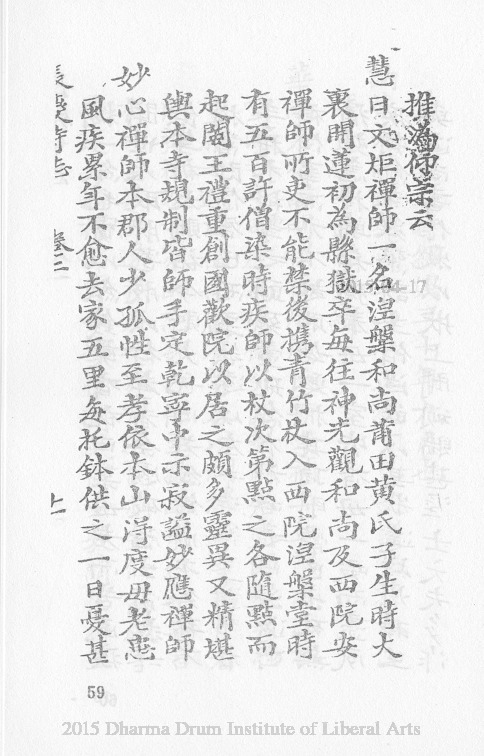 推溈仰宗云
慧日文炬禪師一名涅槃和尚莆田黃氏子生時大
裏開蓮初為縣獄卒每往神光觀和尚及西院安
禪師所吏不能禁後攜青竹杖入西院涅槃堂時
有五百許僧染時疾師以杖次第點之各隨點而
起閩王禮重創國歡院以居之頗多靈異又精堪
輿本寺規制皆師手定乾寧中示寂謚妙應禪師
妙心禪師本郡人少孤性至孝依本山得度母老患
風疾累年不愈去家五里每托鉢供之一日憂甚
寺志 卷三
十一
59
2015 Dharma Drum Institute of Liberal Arts